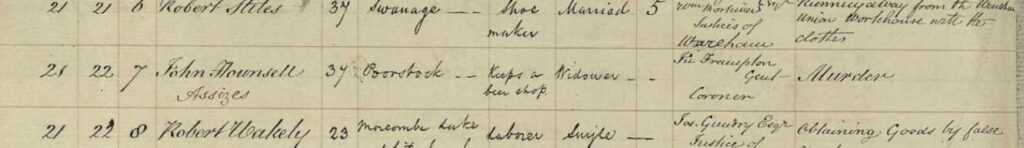 21 21 6 Robert Stiles 37 Swanage - - Shoe Married 5 Running away from the
maker Justices of union Workhouse with the
Wareham clothes
21 22 7 John Hounsell 37 Poorstock - - Keeps a Widower - - Frampton Murder
Assizes beer shop Gent
Coroner
21 22 8 Robert Wakely 23 Morcombe Lake Laborer Single - Jos. Gundry Esqr Obtaining Goods by false
Justice of